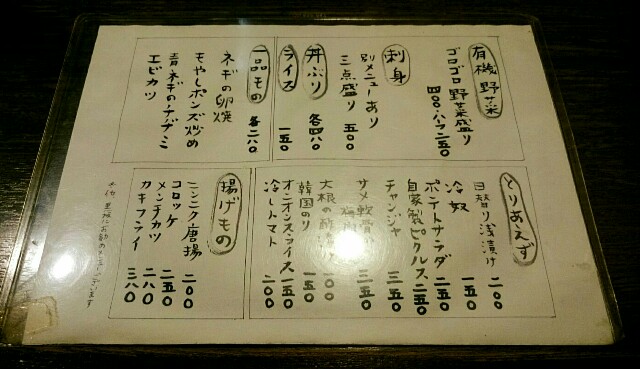 有機野菜
ゴロゴロ野菜盛り
四〇〇・ハーフ二五〇
刺身
別メニューあり
三点盛り 五〇〇
丼ぶり 各四八〇
ライス 一五〇
一品もの 各二八〇
ネギの卵焼
もやしポンズ炒め
青ネギのチヂミ
エビカツ
とりあえず
日替り浅漬け 二〇〇
冷奴 一五〇
ポテトサラダ 二五〇
自家製ピクルス 二五〇
チャンジャ 三五〇
サメ軟骨の 三五〇
大根の 一〇〇
韓国のり 一五〇
オニオンスライス 一五〇
冷しトマト 二〇〇
揚げもの
ニンニク唐揚 二〇〇
コロッケ 二五〇
メンチカツ 二八〇
カキフライ 三八〇